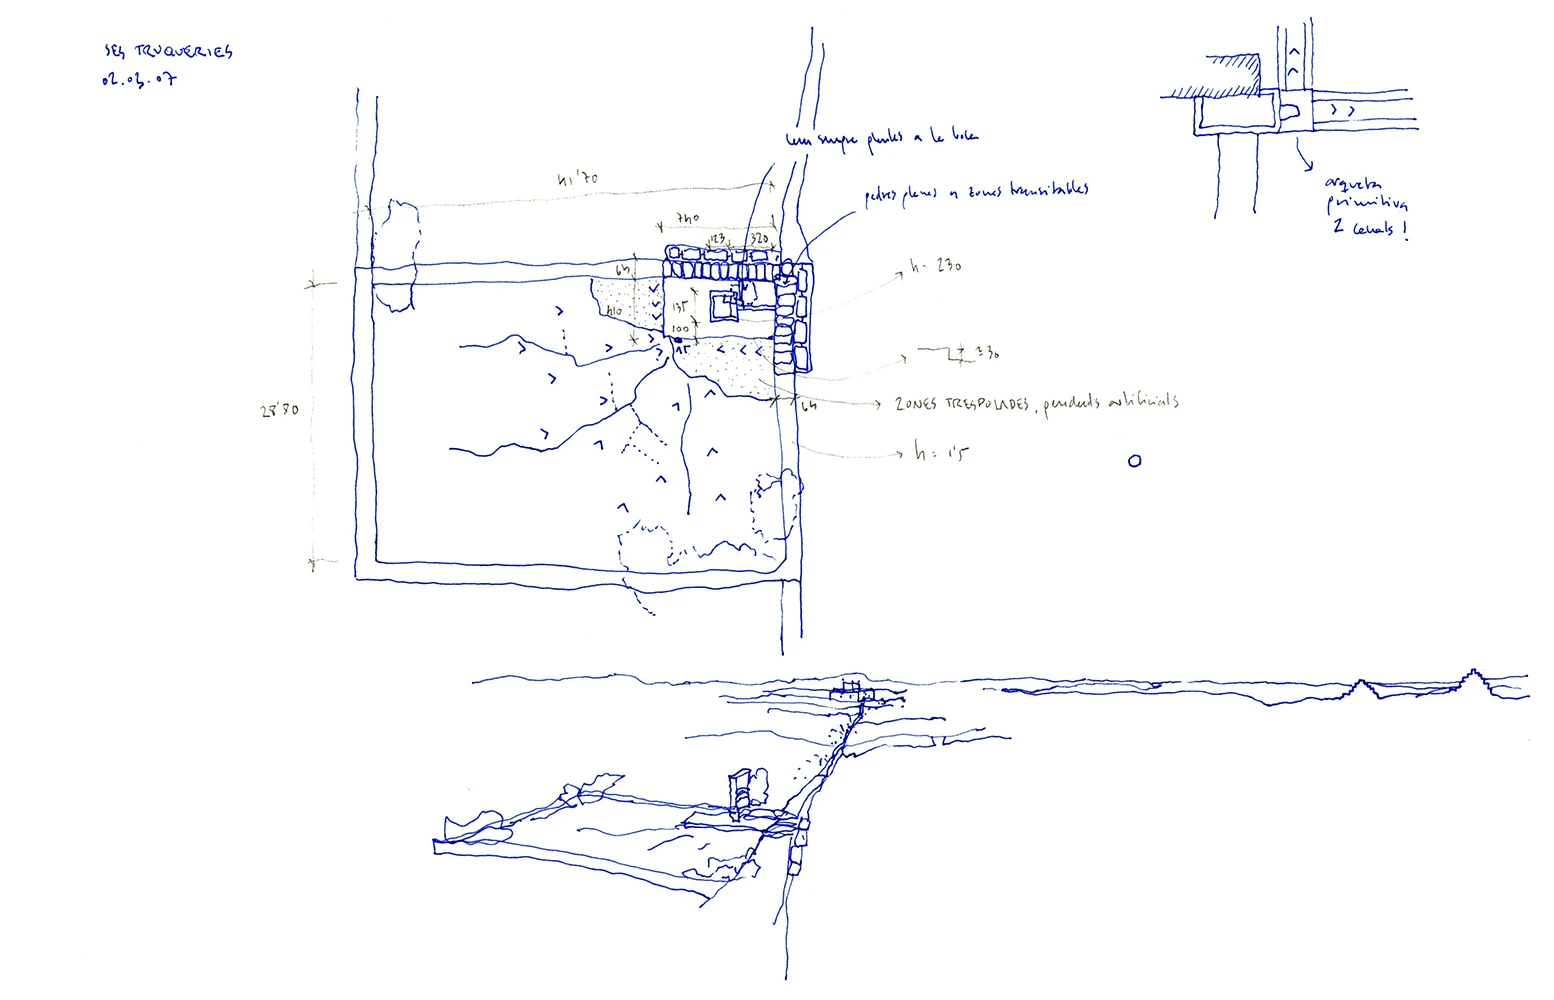 SES TRUQUERIES
02.03.07
sempre plantes a la boca
pedres planes a zones transitables
arqueta
primitiva
2 canals!
41'70
740
123
320
64
410
135
100
15
h= 230
30
ZONES TRESPOLADES, pendents artificials
64
h= 1'5
28'80